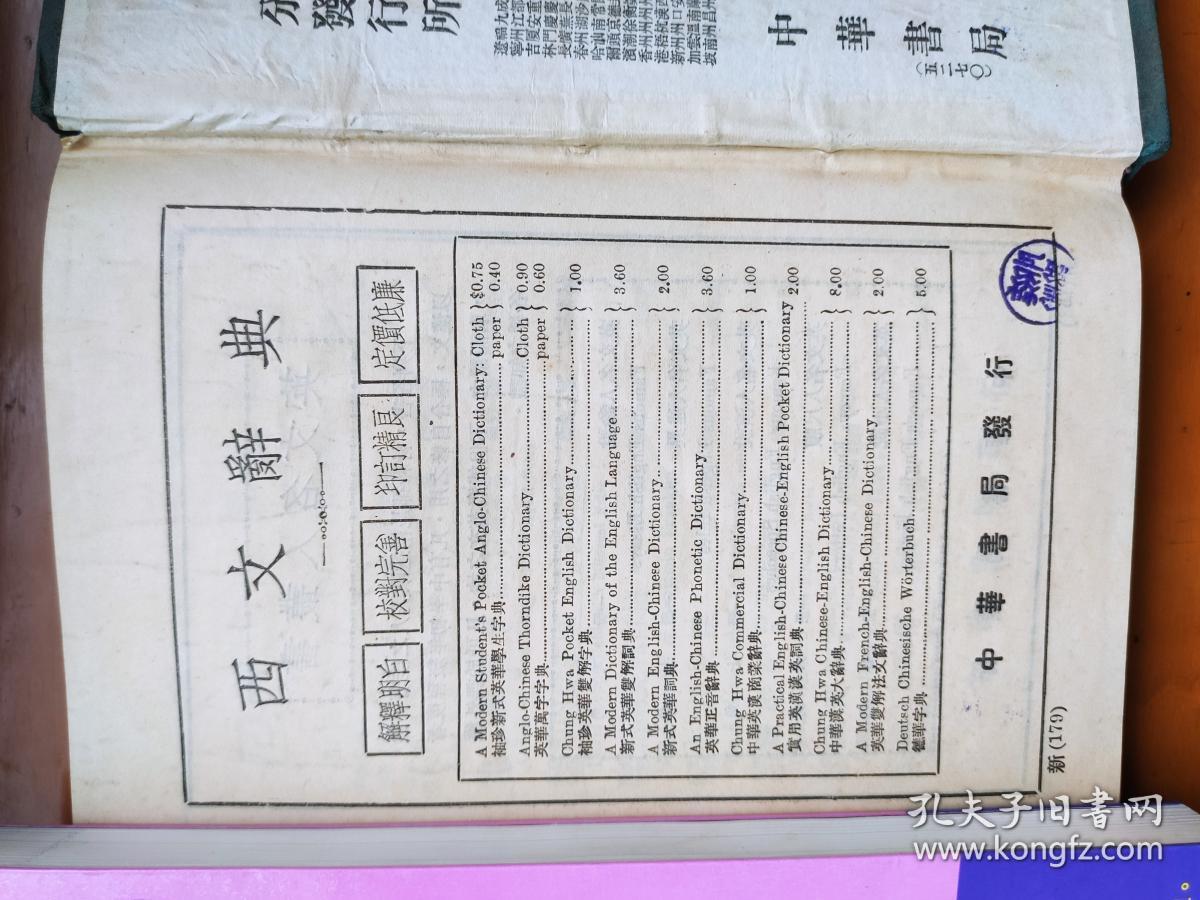 發行所
中華書局
(五二七〇)
西文辭典
解釋明白
校對完善
印訂精良
定價低廉
A Modern Student's Pocket Anglo-Chinese Dictionary: Cloth $0.75
袖珍新式英華學生字典 paper 0.40
Anglo-Chinese Thorndike Dictionary Cloth 0.90
英華萬字字典 paper 0.60
Chung Hwa Pocket English Dictionary
袖珍英華雙解字典 1.00
A Modern Dictionary of the English Language
新式英華雙解詞典 3.60
A Modern English-Chinese Dictionary
新式英華詞典 2.00
An English-Chinese Phonetic Dictionary
英華正音辭典 3.60
Chung Hwa Commercial Dictionary
中華英漢商業辭典 1.00
A Practical English-Chinese Chinese-English Pocket Dictionary 2.00
實用英漢漢英詞典
Chung Hwa Chinese-English Dictionary
中華漢英大辭典 8.00
A Modern French-English-Chinese Dictionary
英華雙解法文辭典 2.00
Deutsch Chinesische Wörterbuch
德華字典 5.00
中華書局發行
新(179)
孔夫子旧书网
www.kongfz.com